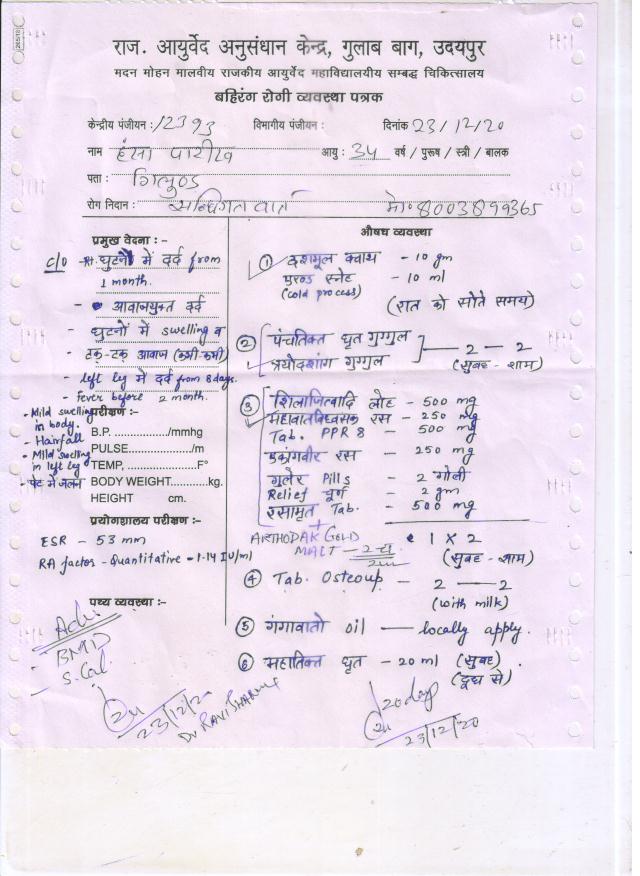 राज. आयुर्वेद अनुसंधान केन्द्र, गुलाब बाग, उदयपुर
मदन मोहन मालवीय राजकीय आयुर्वेद महाविद्यालयीय सम्बद्ध चिकित्सालय
बहिरंग रोगी व्यवस्था पत्रक
केन्द्रीय पंजीयन : 12393 विभागीय पंजीयन : दिनांक 23/12/20
नाम हंसा पारीख आयु : 34 वर्ष / पुरूष / स्त्री / बालक
पता : गिलुण्ड
रोग निदान : सन्धिगत वात मो० 8003899365
प्रमुख वेदना :-
c/o - Rt. घुटनों में दर्द from
1 month.
- आवाजयुक्त दर्द
- घुटनों में swelling व
- टक-टक आवाज (कभी-कभी)
- left leg में दर्द from 8 days.
- Fever before 2 month.
- Mild swelling in body.
- Hairfall
- Mild swelling in left leg
- पेट में जलन
परीक्षण :-
B.P. ............/mmhg
PULSE................/m
TEMP, ................F°
BODY WEIGHT.........kg.
HEIGHT cm.
प्रयोगशालय परीक्षण :-
ESR - 53 mm
RA factor - Quantitative = 1.14 IU/ml
पथ्य व्यवस्था :-
Adv.
BMD
S. Cal.
23/12/20
औषध व्यवस्था
① दशमूल क्वाथ - 10 gm
एरण्ड स्नेह - 10 ml
(cold process)
(रात को सोते समय)
② पंचतिक्त घृत गुग्गुल
त्रयोदशांग गुग्गुल
2 — 2
(सुबह - शाम)
③ शिलाजित्वादि लोह - 500 mg
महावातविध्वंसक रस - 250 mg
Tab. PPR 8 - 500 mg
एकांगवीर रस - 250 mg
गुलेर Pills - 2 गोली
Relief चूर्ण - 2 gm
रसामृत Tab. - 500 mg
+
ARTHODAK GOLD
MALT — 2 च.
1 X 2
(सुबह - शाम)
④ Tab. Osteoup - 2 — 2
(with milk)
⑤ गंगावातो oil — locally apply.
⑥ महातिक्त घृत - 20 ml (सुबह)
(दूध से)
20 day
23/12/20